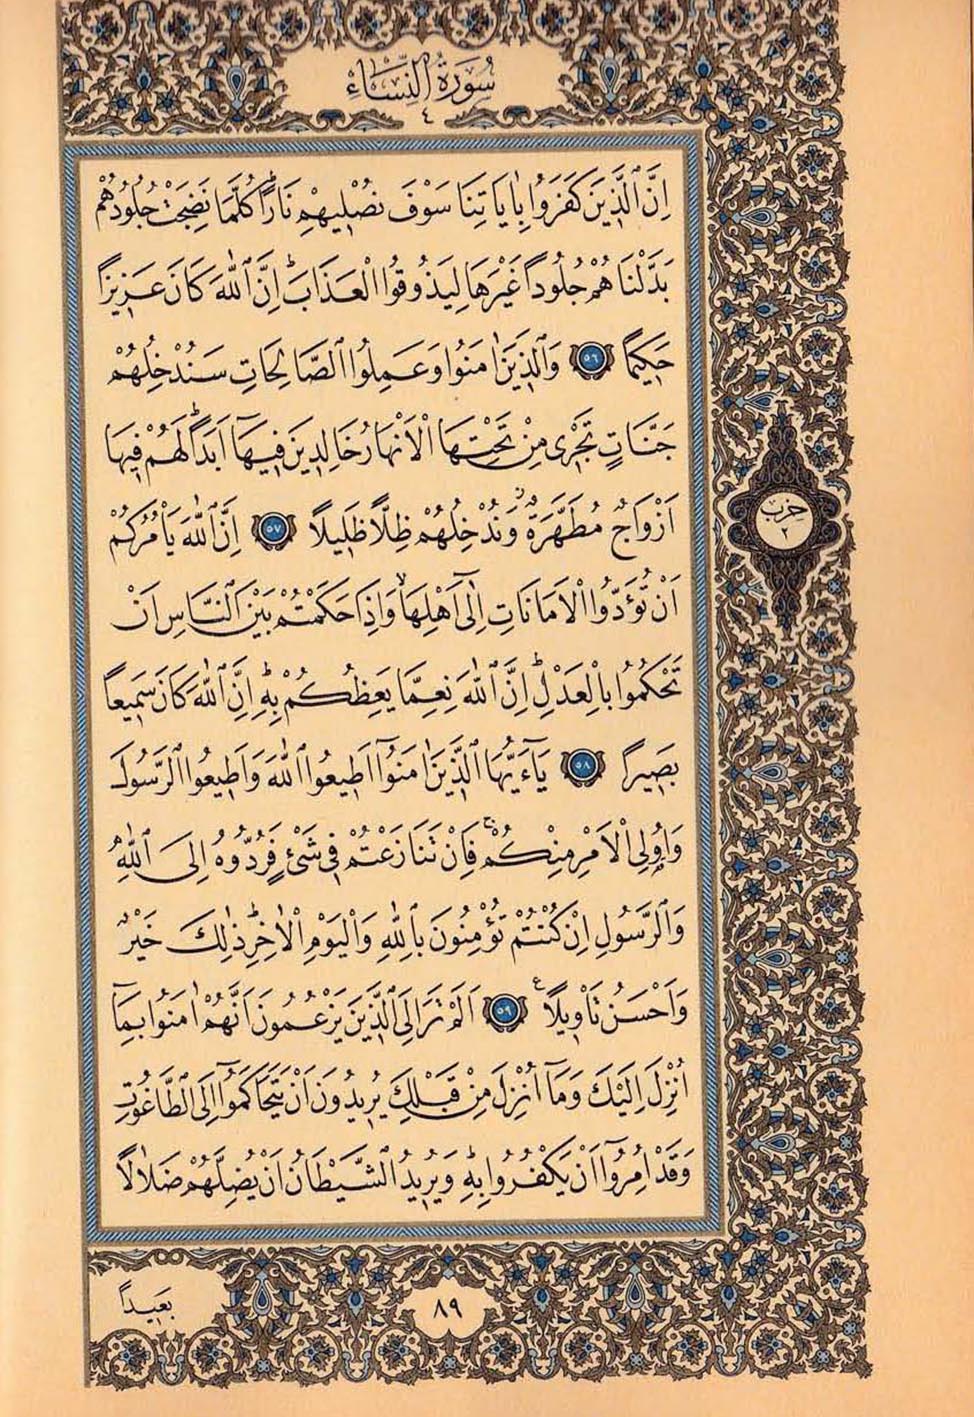 سُورَةُ النِّسَاءِ
٤
اِنَّ الَّذٖينَ كَفَرُوا بِاٰيَاتِنَا سَوْفَ نُصْلٖيهِمْ نَارًاؕ كُلَّمَا نَضِجَتْ جُلُودُهُمْ
بَدَّلْنَاهُمْ جُلُودًا غَيْرَهَا لِيَذُوقُوا الْعَذَابَؕ اِنَّ اللّٰهَ كَانَ عَزٖيزًا
حَكٖيمًا ﴿٥٦﴾ وَالَّذٖينَ اٰمَنُوا وَعَمِلُوا الصَّالِحَاتِ سَنُدْخِلُهُمْ
جَنَّاتٍ تَجْرٖى مِنْ تَحْتِهَا الْاَنْهَارُ خَالِدٖينَ فٖيهَٓا اَبَدًاؕ لَهُمْ فٖيهَا
اَزْوَاجٌ مُطَهَّرَةٌؗ وَنُدْخِلُهُمْ ظِلًّا ظَلٖيلًا ﴿٥٧﴾ اِنَّ اللّٰهَ يَاْمُرُكُمْ
اَنْ تُؤَدُّوا الْاَمَانَاتِ اِلٰٓى اَهْلِهَاۙ وَاِذَا حَكَمْتُمْ بَيْنَ النَّاسِ اَنْ
تَحْكُمُوا بِالْعَدْلِؕ اِنَّ اللّٰهَ نِعِمَّا يَعِظُكُمْ بِهٖؕ اِنَّ اللّٰهَ كَانَ سَمٖيعًا
بَصٖيرًا ﴿٥٨﴾ يَٓا اَيُّهَا الَّذٖينَ اٰمَنُٓوا اَطٖيعُوا اللّٰهَ وَاَطٖيعُوا الرَّسُولَ
وَاُولِى الْاَمْرِ مِنْكُمْۚ فَاِنْ تَنَازَعْتُمْ فٖى شَىْءٍ فَرُدُّوهُ اِلَى اللّٰهِ
وَالرَّسُولِ اِنْ كُنْتُمْ تُؤْمِنُونَ بِاللّٰهِ وَالْيَوْمِ الْاٰخِرِؕ ذٰلِكَ خَيْرٌ
وَاَحْسَنُ تَاْوٖيلًاࣖ ﴿٥٩﴾ اَلَمْ تَرَ اِلَى الَّذٖينَ يَزْعُمُونَ اَنَّهُمْ اٰمَنُوا بِمَٓا
اُنْزِلَ اِلَيْكَ وَمَٓا اُنْزِلَ مِنْ قَبْلِكَ يُرٖيدُونَ اَنْ يَتَحَاكَمُٓوا اِلَى الطَّاغُوتِ
وَقَدْ اُمِرُٓوا اَنْ يَكْفُرُوا بِهٖؕ وَيُرٖيدُ الشَّيْطَانُ اَنْ يُضِلَّهُمْ ضَلَالًا
حزب
٢
بَعٖيدًا
٨٩